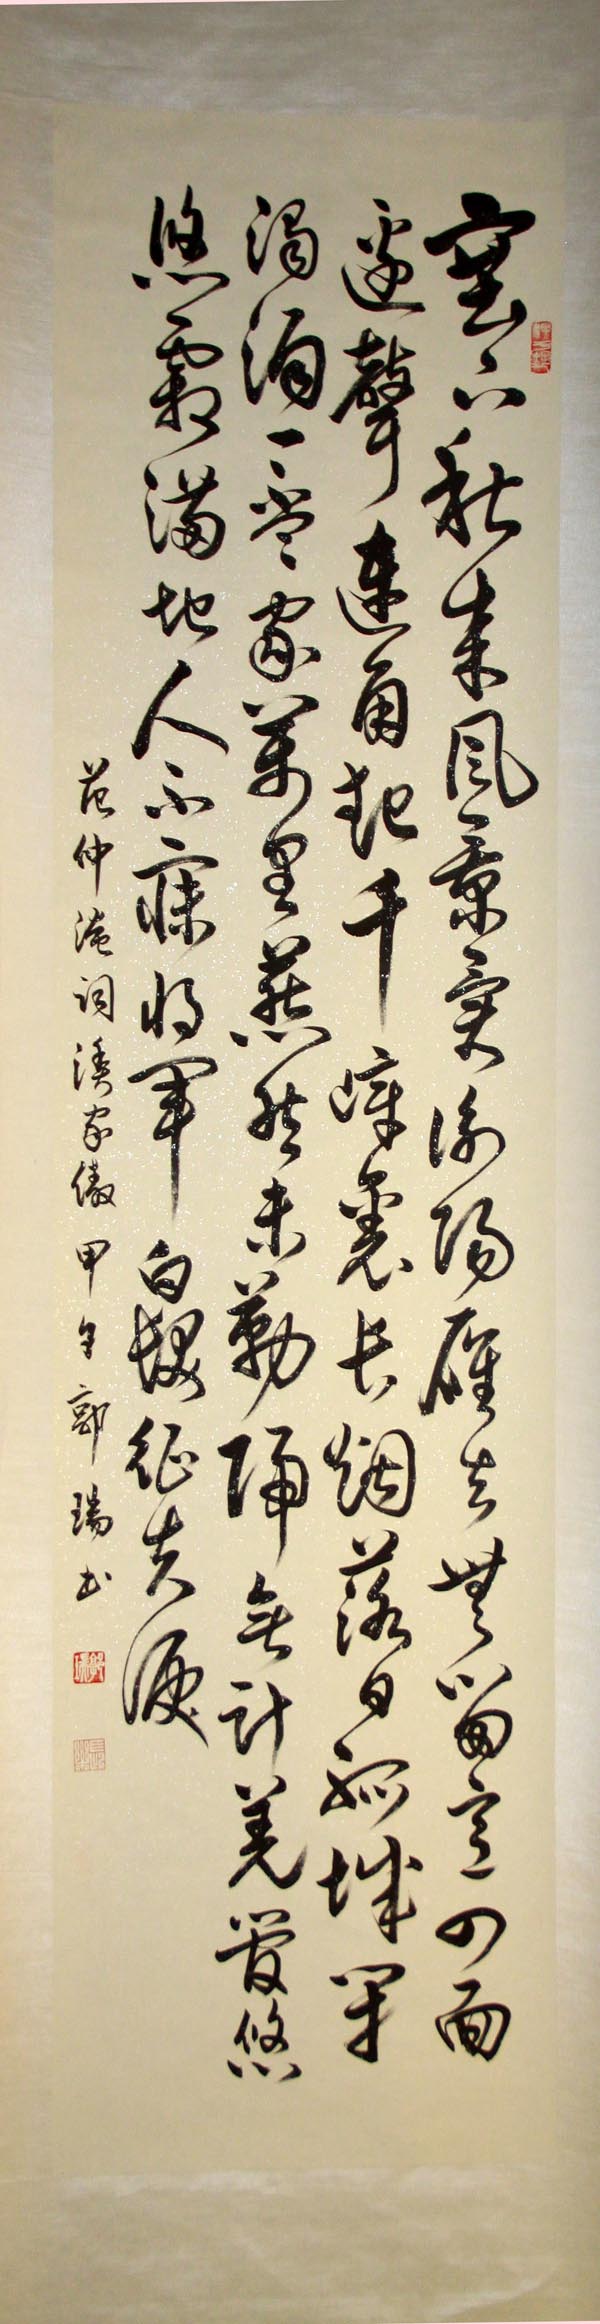 塞下秋来風景異衡陽雁去無留意四面
邊聲連角起千嶂裏长烟落日孤城闭
濁酒一盃家萬里燕然未勒歸無計羌管悠
悠霜满地人不寐将軍白髮征夫淚
范仲淹詞漁家傲甲午郭瑞书